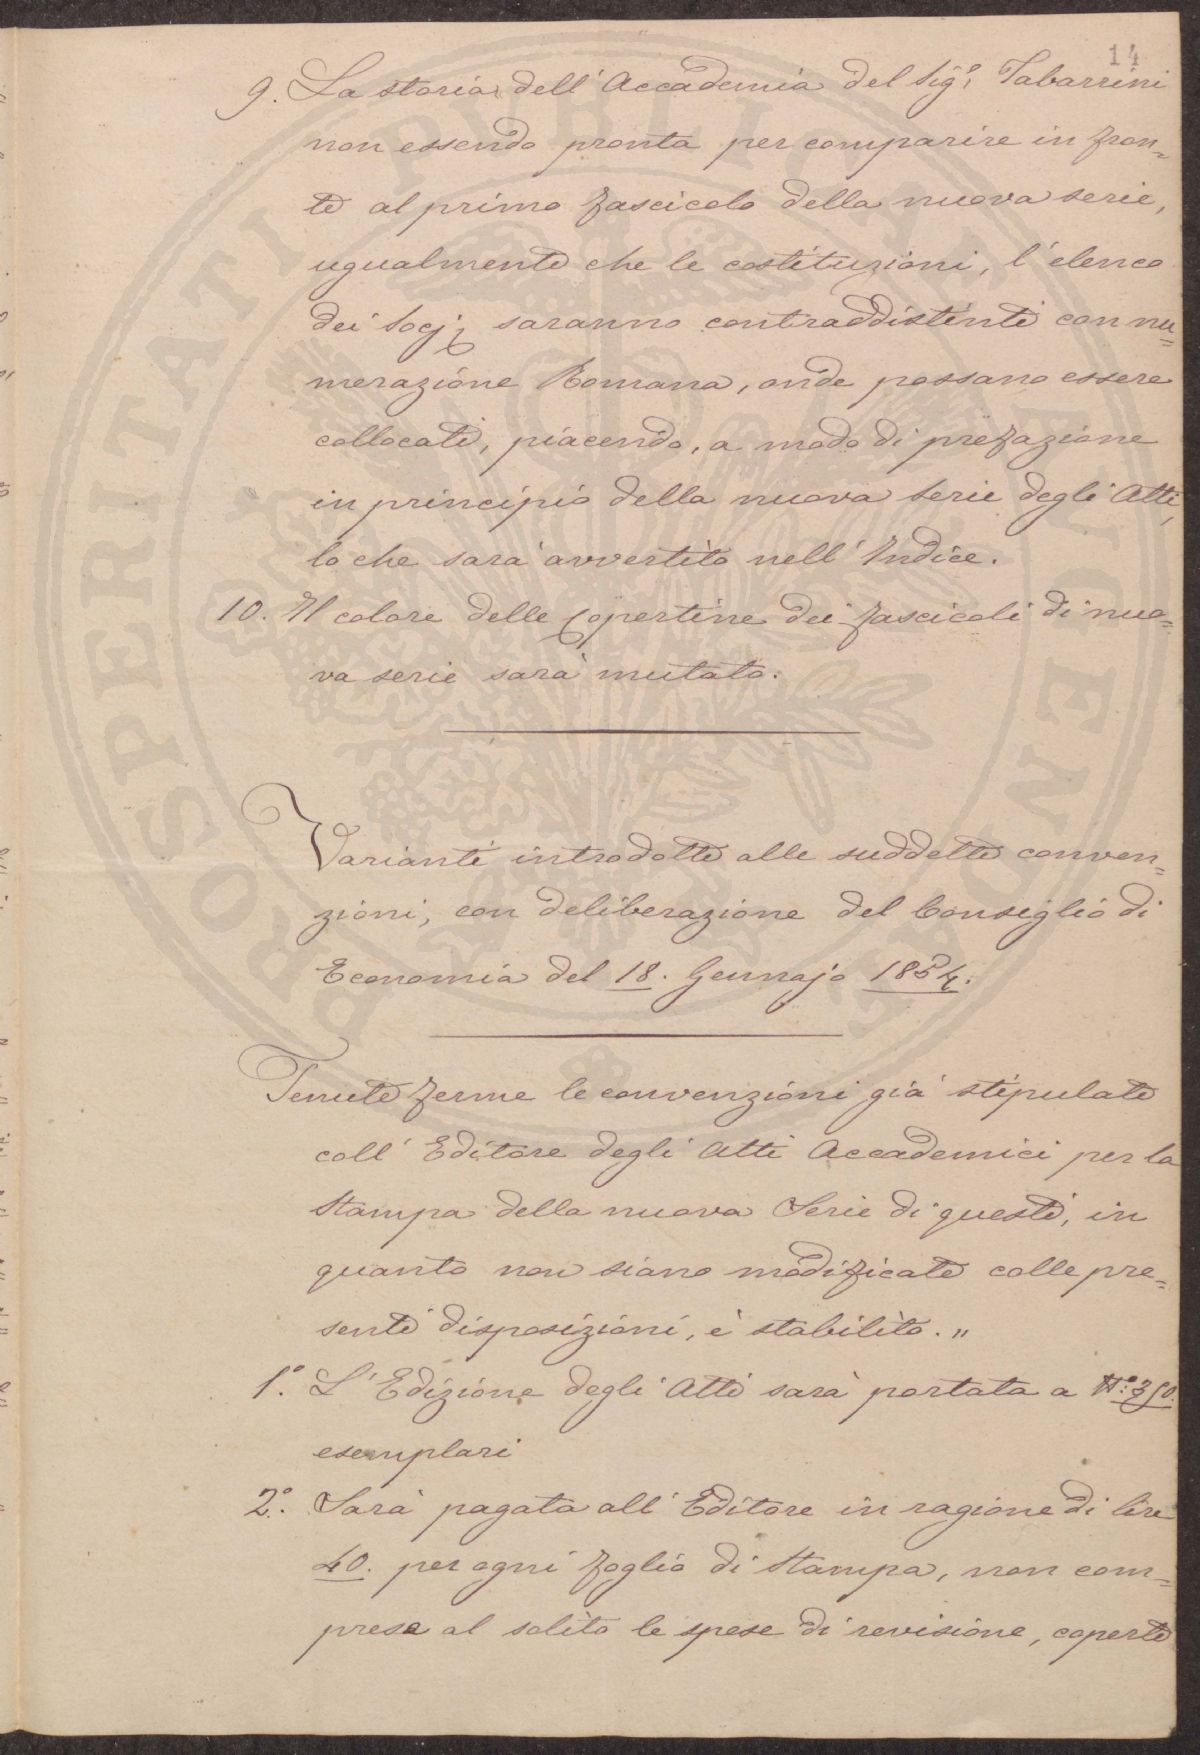 14
9. La storia dell' Accademia del Sigr. Tabarrini
non essendo pronta per comparire in fron=
te al primo fascicolo della nuova serie,
ugualmente che le costituzioni, l'elenco
dei Socj, saranno contraddistinti con nu=
merazione Romana, onde possano essere
collocati, piacendo, a modo di prefazione
in principio della nuova serie degli Atti,
lo che sarà avvertito nell' Indice.
10. Il colore delle copertine dei fascicoli di nuo=
va serie sarà mutato.
Varianti introdotte alle suddette conven=
zioni, con deliberazione del Consiglio di
Economia del 18. Gennajo 1854.
Tenute ferme le convenzioni già stipulate
coll' Editore degli Atti Accademici per la
Stampa della nuova Serie di questi, in
quanto non siano modificate colle pre=
senti disposizioni, è stabilito. "
1°. L'Edizione degli Atti sarà portata a N°. 350.
esemplari
2°. Sarà pagata all' Editore in ragione di lire
40. per ogni foglio di Stampa, non com=
prese al solito le spese di revisione, coperte
PROSPERITATI PUBLICAE AUGENDAE